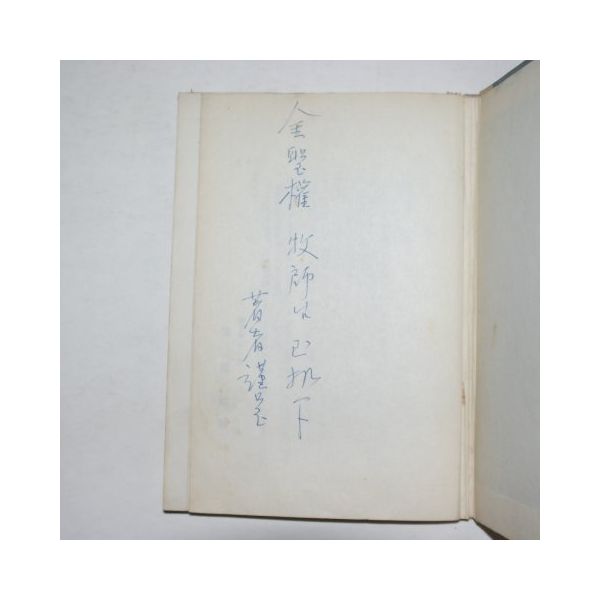 金聖權 牧師님 玉机下
著者 謹呈